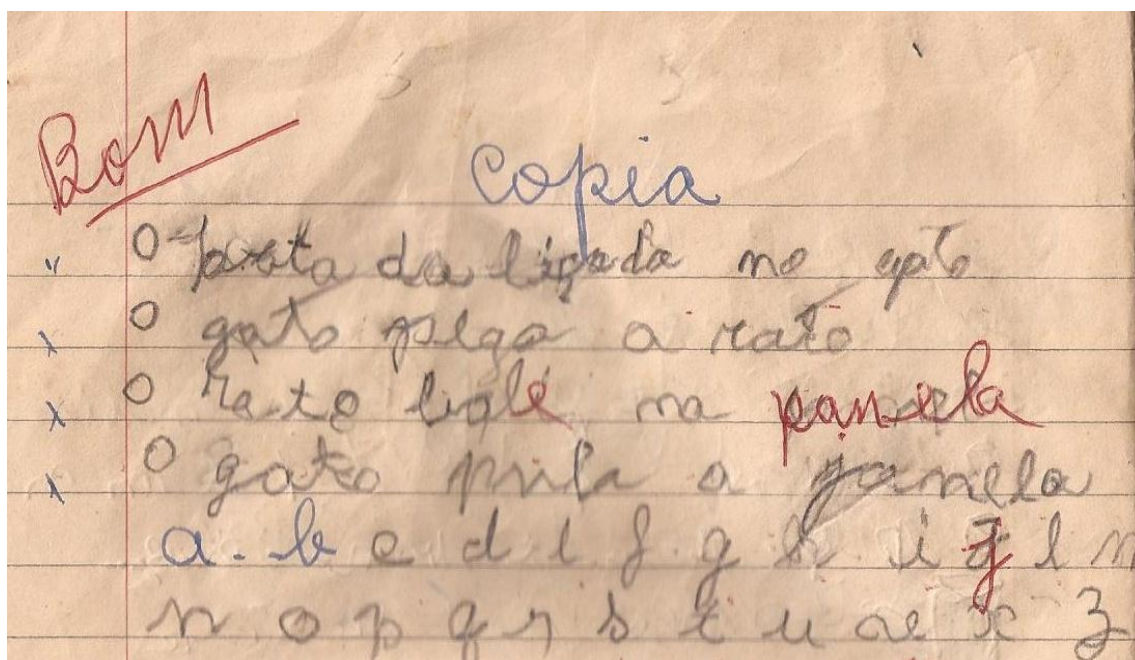 Bom
Copia
O pata da no gato
O gato pega a rato
O rato na panela
O gato pula a janela
a. b c d e f g h i j l m
n o p q r s t u v x z